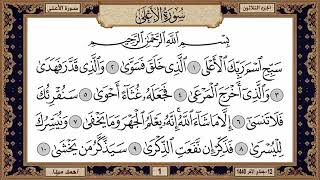 الجزء الثلاثون
سورة الأعلى
سُورَةُ الأَعْلَى
بِسْمِ اللَّهِ الرَّحْمَنِ الرَّحِيمِ
سَبِّحِ اسْمَ رَبِّكَ الْأَعْلَى ١ الَّذِي خَلَقَ فَسَوَّى ٢ وَالَّذِي قَدَّرَ فَهَدَى
٣ وَالَّذِي أَخْرَجَ الْمَرْعَى ٤ فَجَعَلَهُ غُثَاءً أَحْوَى ٥ سَنُقْرِئُكَ
فَلَا تَنسَى ٦ إِلَّا مَا شَاءَ اللَّهُ إِنَّهُ يَعْلَمُ الْجَهْرَ وَمَا يَخْفَى ٧ وَنُيَسِّرُكَ
لِلْيُسْرَى ٨ فَذَكِّرْ إِن نَّفَعَتِ الذِّكْرَى ٩ سَيَذَّكَّرُ مَن يَخْشَى ١٠
1440
1